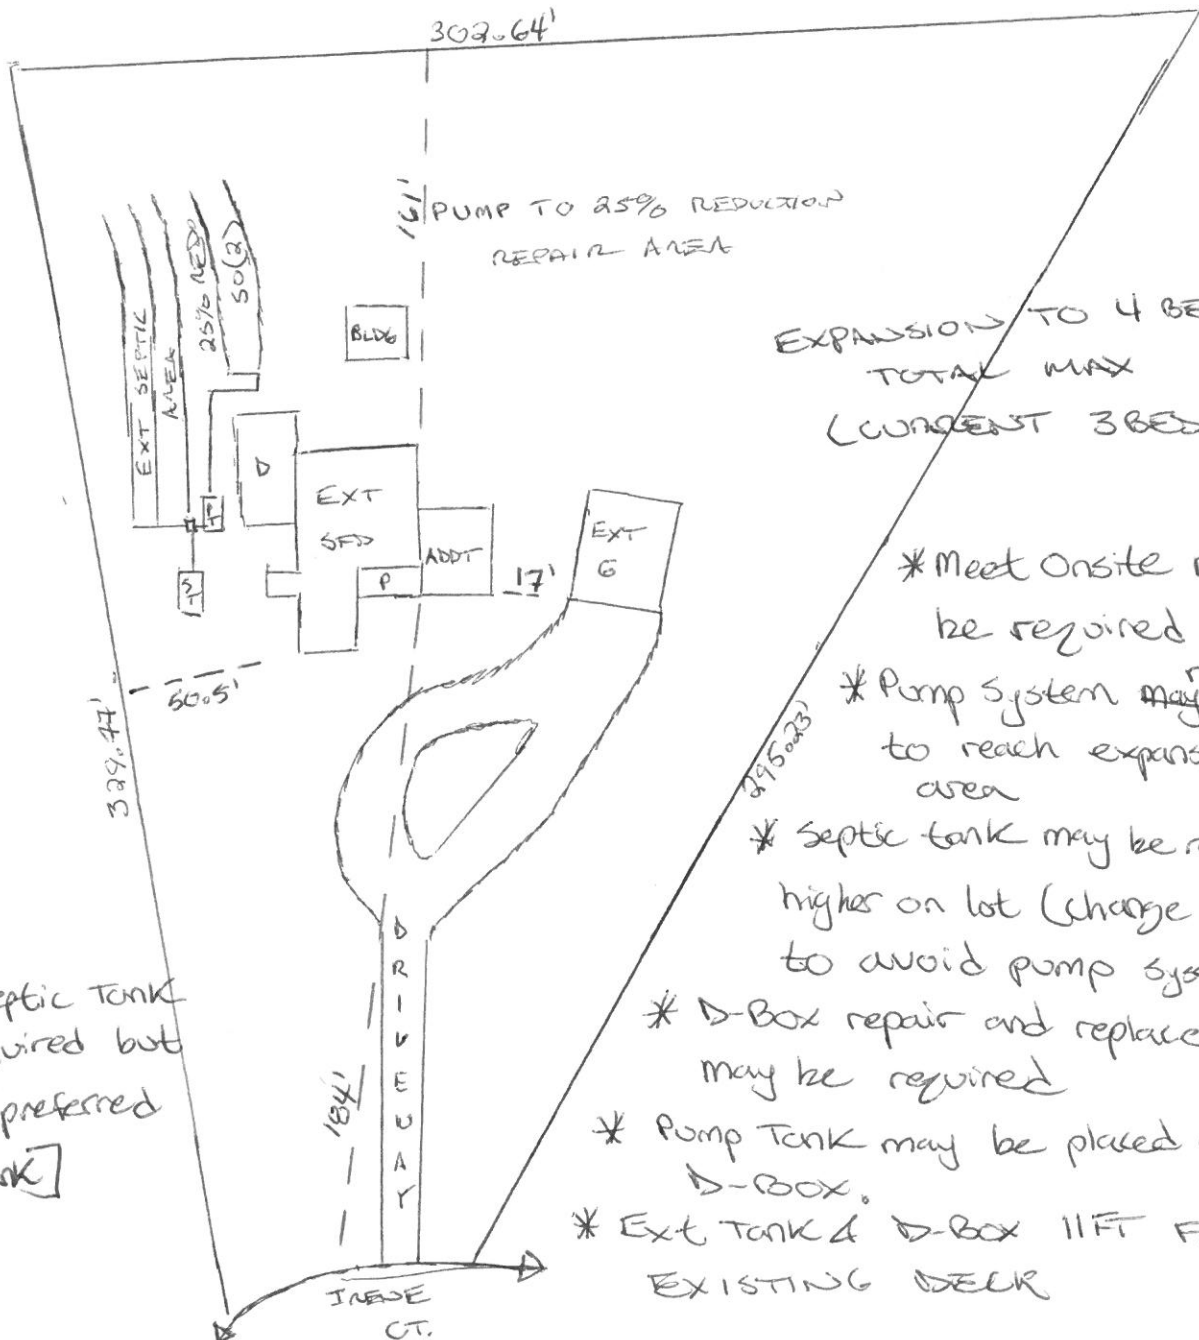 302.64'
161'
PUMP TO 25% REDUCTION
REPAIR AREA
EXT SEPTIC
AREA
25% RED
50(2)
BLDG
EXPANSION TO 4 BE
TOTAL MAX
(CURRENT 3 BED
D
EXT
SFD
ADDT
P
17'
EXT
G
PT
ST
50.5'
329.77'
295.23'
* Meet Onsite
be required
* Pump System may
to reach expans
area
* Septic tank may be
higher on lot (change
to avoid pump sys
* D-Box repair and replace
may be required
* Pump Tank may be placed
D-Box.
* Ext Tank & D-Box 11FT F
EXISTING DECK
eptic Tank
uired but
preferred
nk]
DRIVEWAY
184'
IRENE
CT.